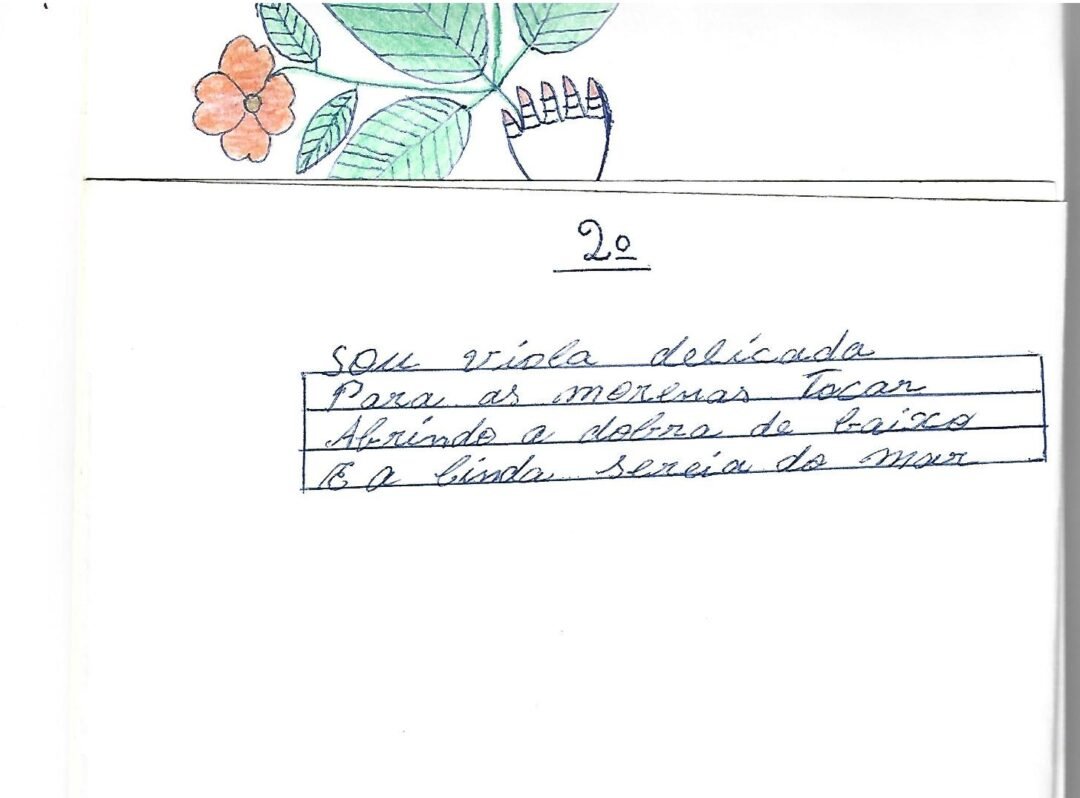 2º
Sou viola delicada
Para as morenas Tocar
Abrindo a dobra de baixo
E a linda sereia do mar